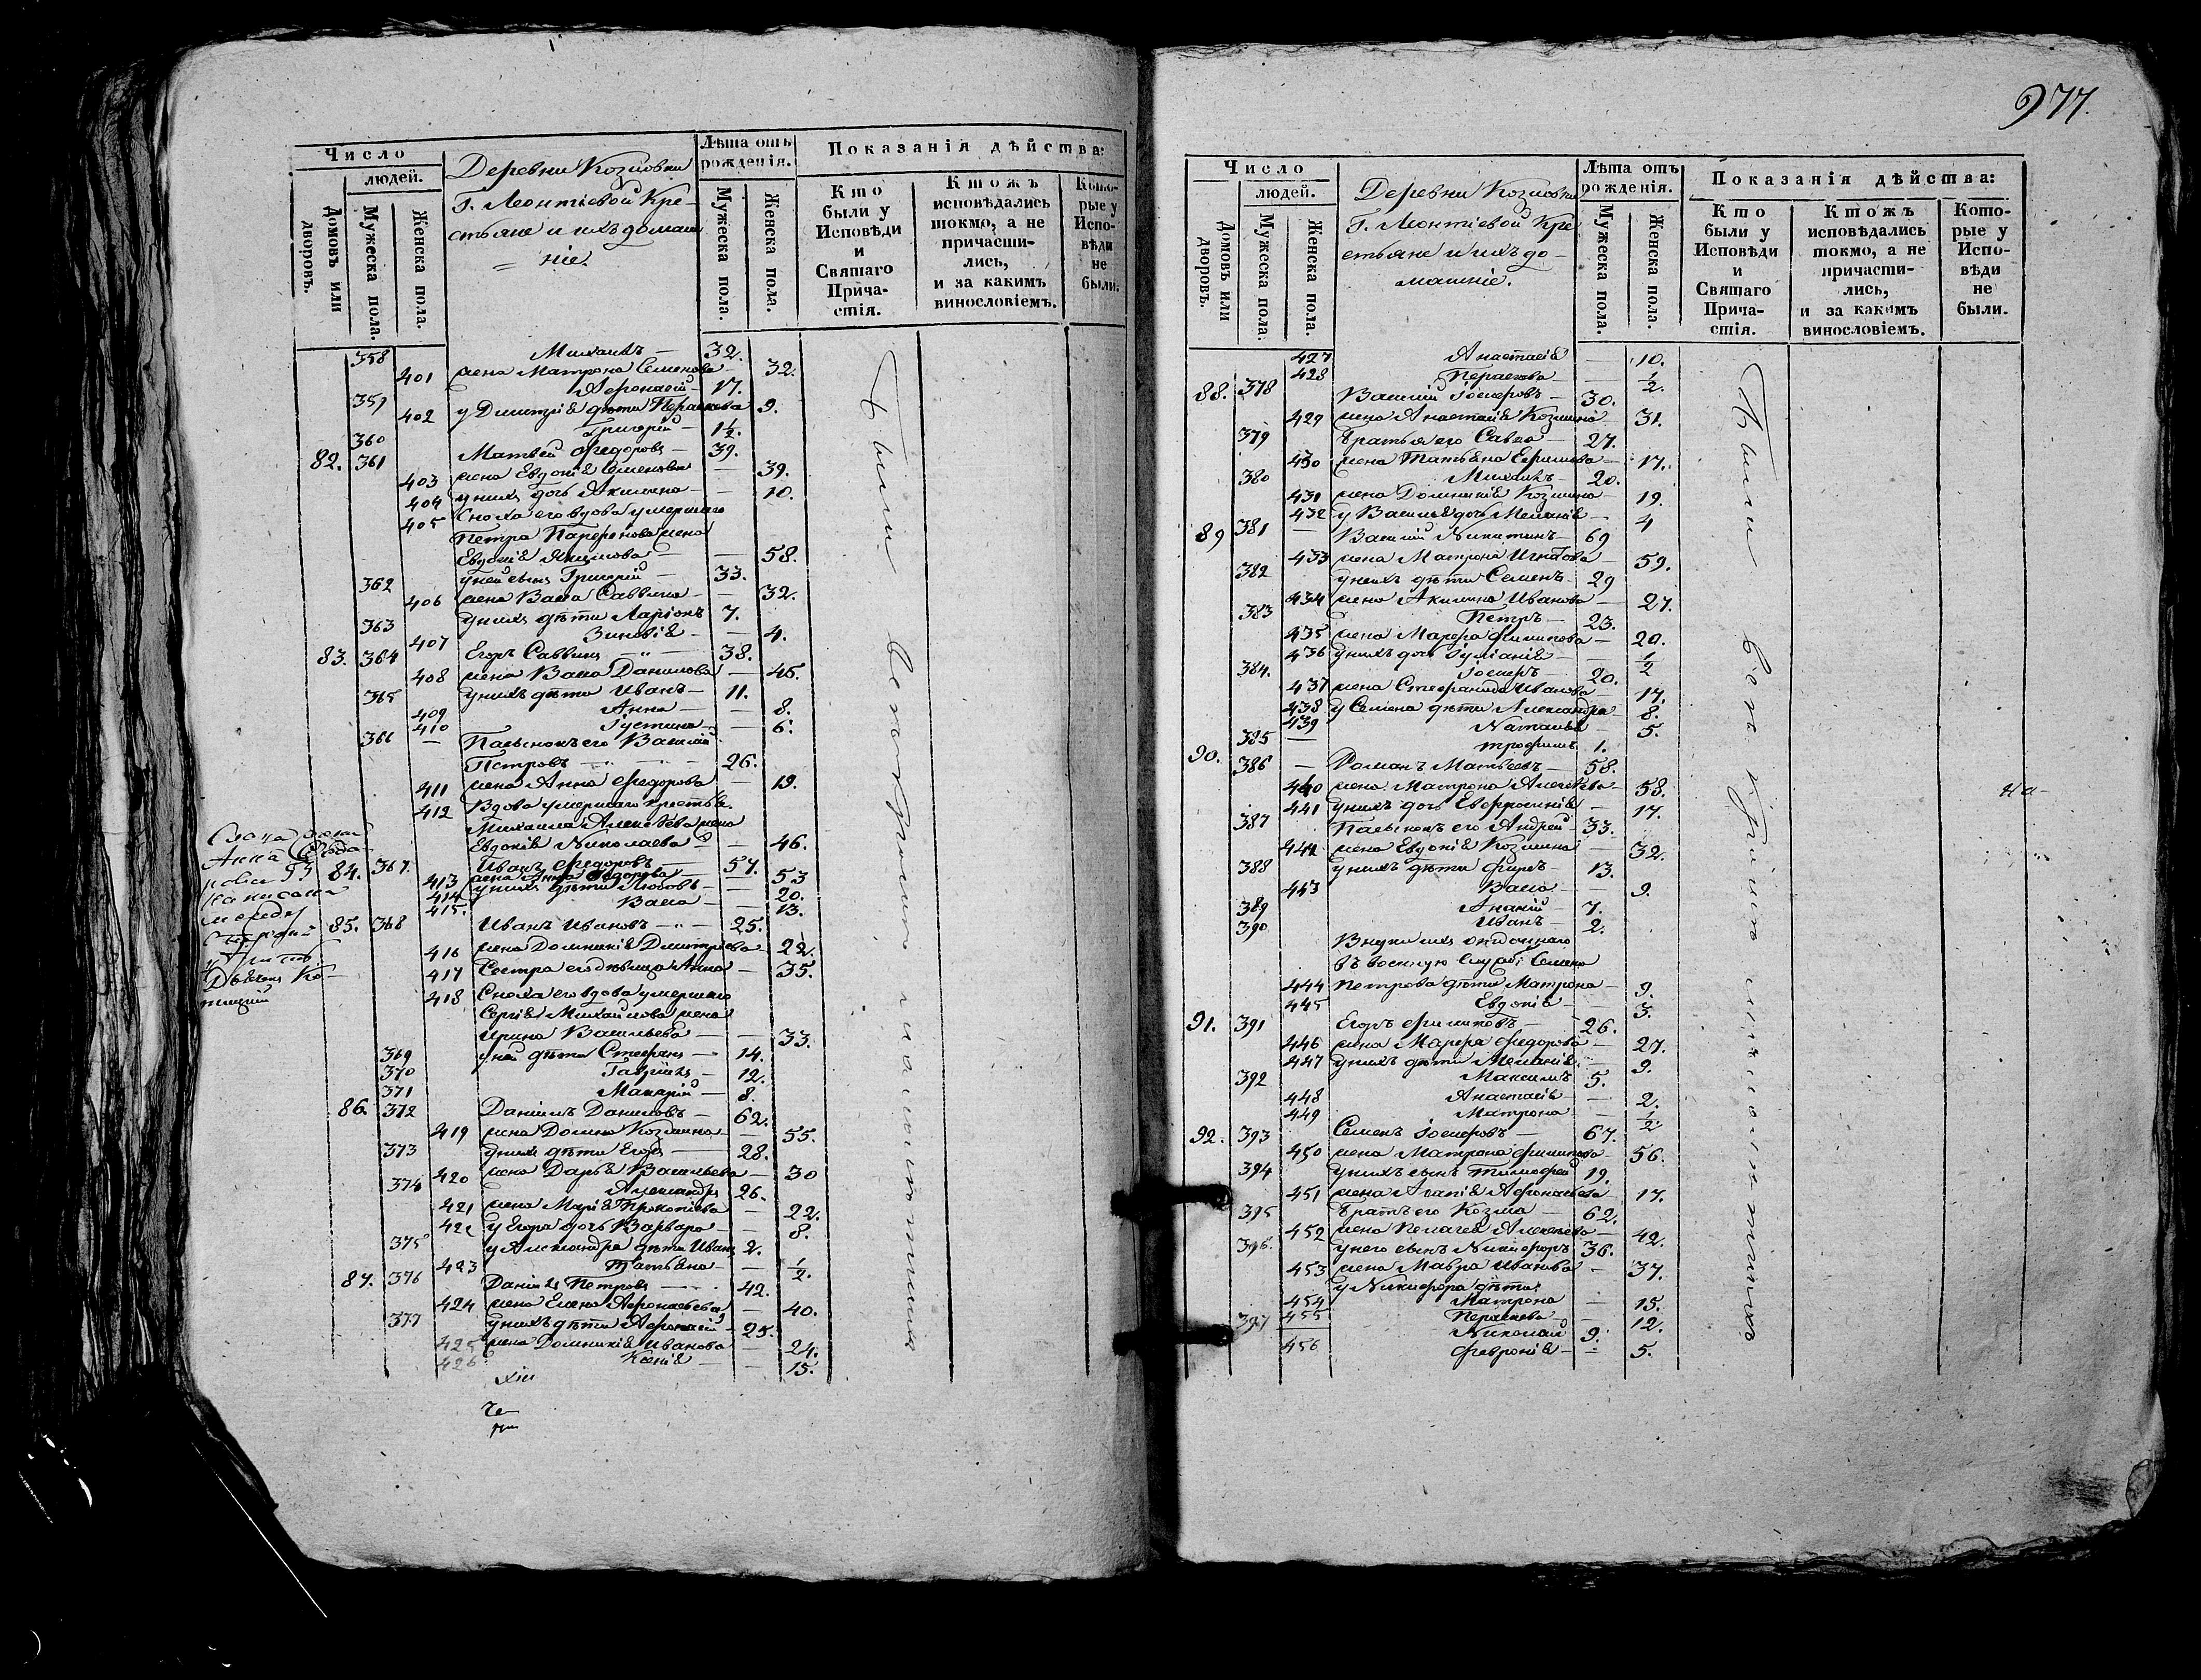 Число
людей.
Домовъ или дворовъ.
Мужеска пола.
Женска пола.
Деревни Козловки
Г. Леонтіевой Кре-
стьяне и ихъ домаш
=ніе.
Лѣта отъ рожденія.
Мужеска пола.
Женска пола.
Показанія дѣйства:
Кто были у Исповѣди и Святаго Прича-стія.
Ктожъ исповѣдались токмо, а не причасти-лись, и за какимъ винословіемъ.
Кото-рые у Испо-вѣди не были.
358 Михаилъ — 32.
401 жена Матрона Семенова — 32.
359 Афонасій — 17.
402 у Димитрія дѣти Параскева 9.
360 Григорій — 1½.
82. 361 Матвей Федоровъ — 39.
403 жена Евдокія Семенова — 39.
404 у нихъ дочь Акилина — 10.
405 Сноха его вдова умершаго
Петра Парфенова жена
Евдокія Якимова — 58.
362 у ней сынъ Григорій — 33.
406 жена Васса Саввина — 32.
363 у нихъ дѣти Ларіонъ 7.
407 Зиновія — 4.
83. 364 Егоръ Саввинъ — 38.
408 жена Васса Данилова — 45.
365 у нихъ дѣти Иванъ — 11.
409 Анна — 8.
410 Іустина — 6.
366 — Пасынокъ его Василій
Петровъ — 26.
411 жена Анна Федорова — 19.
412 Вдова умершаго крестья.
Михаила Алексѣева жена
Евдокія Николаева — 46.
84. 367. Иванъ Федоровъ — 57.
413 жена Анна Федорова — 53
414 у нихъ дѣти Любовь — 20.
415. Васса — 13.
85. 368 Иванъ Ивановъ — 25.
416 жена Домникія Димитріева 22.
417 Сестра его дѣвица Анна — 35.
418 Сноха его вдова умершаго
Сергія Михайлова жена
Ирина Васильева — 33.
369 у ней дѣти Стефанъ — 14.
370 Гавріилъ — 12.
371 Макарій — 8.
86. 372 Даніилъ Даниловъ — 62.
419 жена Домна Козмина — 55.
373 у нихъ дѣти Егоръ — 28.
420 жена Дарья Васильева — 30
374 Александръ 26.
421 жена Марія Прокопіева — 22.
422 у Егора дочь Варвара — 8.
375 у Александра дѣти Иванъ 2.
423 Татьяна — ½.
87. 376 Даніилъ Петровъ — 42.
424 жена Елена Афонасьева — 40.
377 у нихъ дѣти Афонасій — 25.
425 жена Домникія Иванова — 24.
426 Ксенія — 15.
Были
977.
Число
людей.
Домовъ или дворовъ.
Мужеска пола.
Женска пола.
Деревни Козловки
Г. Леонтіевой Кре
стьяне и ихъ до-
машніе.
Лѣта отъ рожденія.
Мужеска пола.
Женска пола.
Показанія дѣйства:
Кто были у Исповѣди и Святаго Прича-стія.
Ктожъ исповѣдались токмо, а не причасти-лись, и за какимъ винословіемъ.
Кото-рые у Испо-вѣди не были.
427 Анастасія — 10.
428 Параскева — ½.
88. 378 Василій Іосифовъ — 30.
429 жена Анастасія Козмина 31.
379 Братья его Савва — 27.
430 жена Татьяна Ефимова — 17.
380 Михаилъ — 20.
431 жена Домникія Козмина — 19.
432 у Василья дочь Меланія — 4
89 381 — Василій Никитинъ — 69
433 жена Матрона Игнатова — 59.
382 у нихъ дѣти Семенъ — 29
434 жена Акилина Иванова — 27.
383 Петръ — 23.
435 жена Марфа Филипова — 20.
436 у нихъ дочь Іуліанія — ½
384. Іосифъ — 20.
437 жена Стефанида Иванова — 17.
438 у Семена дѣти Александра — 8.
439 Наталья — 5.
385 — Трофимъ 1.
90. 386 — Романъ Матвеевъ — 58.
440 жена Матрона Алексѣева 58.
441 у нихъ дочь Евфросинія — 17.
387 Пасынокъ его Андрей — 33.
442 жена Евдокія Козмина — 32.
388 у нихъ дѣти Фирсъ — 13.
443 Васса — 9.
389 Ананій — 7.
390 Иванъ — 2.
Внуки ихъ отданнаго
въ военную службу Семена
444 Петрова дѣти Матрона — 9.
445 Евдокія — 3.
91. 391 Егоръ Филиповъ — 26.
446 жена Марфа Федорова — 27.
447 у нихъ дѣти Меланія — 9.
392 Максимъ 5.
448 Анастасія — 2.
449 Матрона — ½
92. 393 Семенъ Іосифовъ — 67.
450 жена Матрона Филипова — 56.
394 у нихъ сынъ Тимофей 19.
451 жена Агапія Афонасьева 17.
395 Братъ его Козма — 62.
452 жена Пелагея Алексѣева — 42.
396. у него сынъ Никифоръ 36.
453 жена Мавра Иванова — 37.
у Никифора дѣти
454 Матрона — 15.
455 Параскева — 12.
397 Николай 9.
456 Февронія — 5.
Были